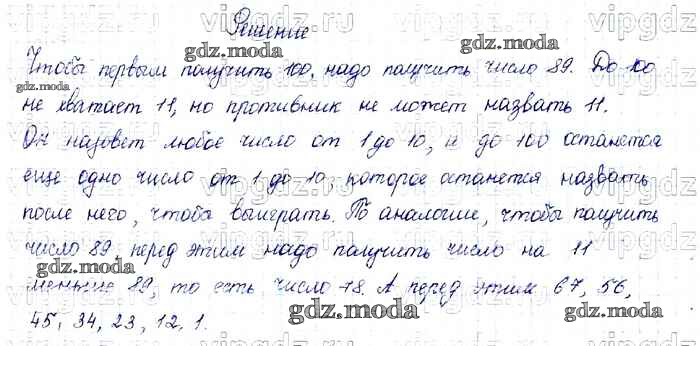 Решение
Чтобы первым получить 100, надо получить число 89. До 100
не хватает 11, но противник не может назвать 11.
Он назовет любое число от 1 до 10, и до 100 останется
еще одно число от 1 до 10, которое останется назвать
после него, чтобы выиграть. По аналогии, чтобы получить
число 89 перед этим надо получить число на 11
меньше 89, то есть число 78. А перед этим 67, 56,
45, 34, 23, 12, 1.
vipgdz.ru
gdz.moda